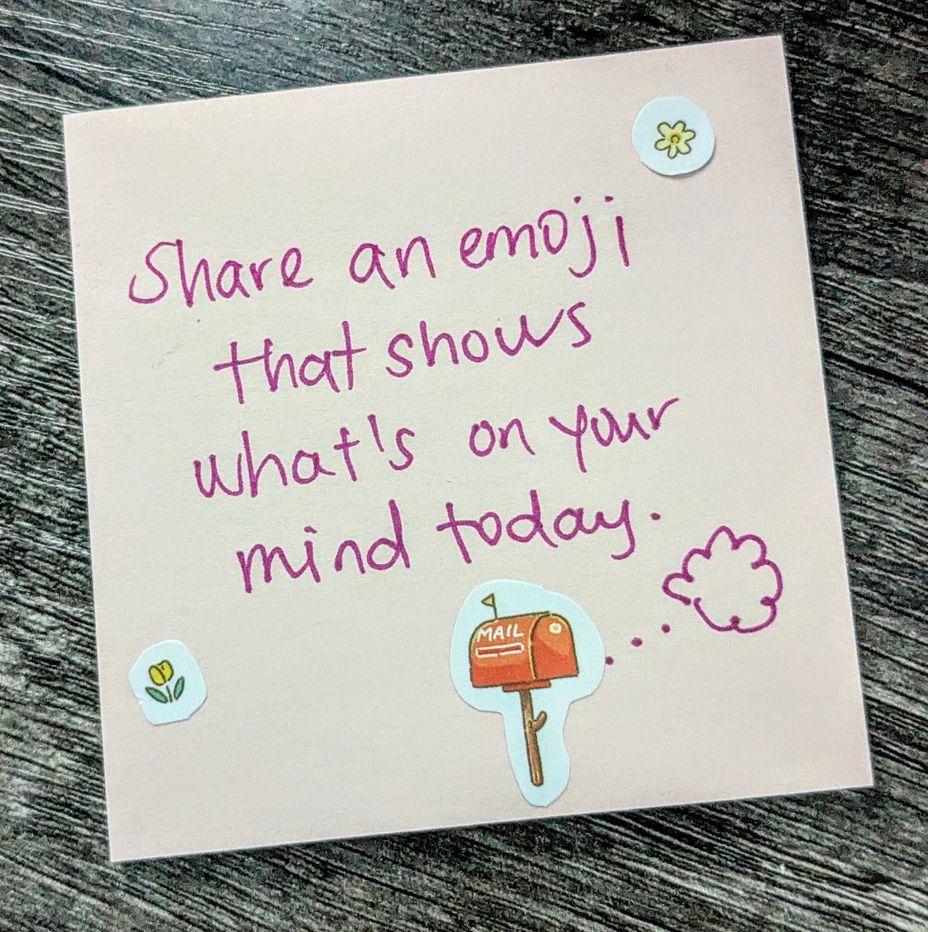 Share an emoji
that shows
what's on your
mind today.
MAIL